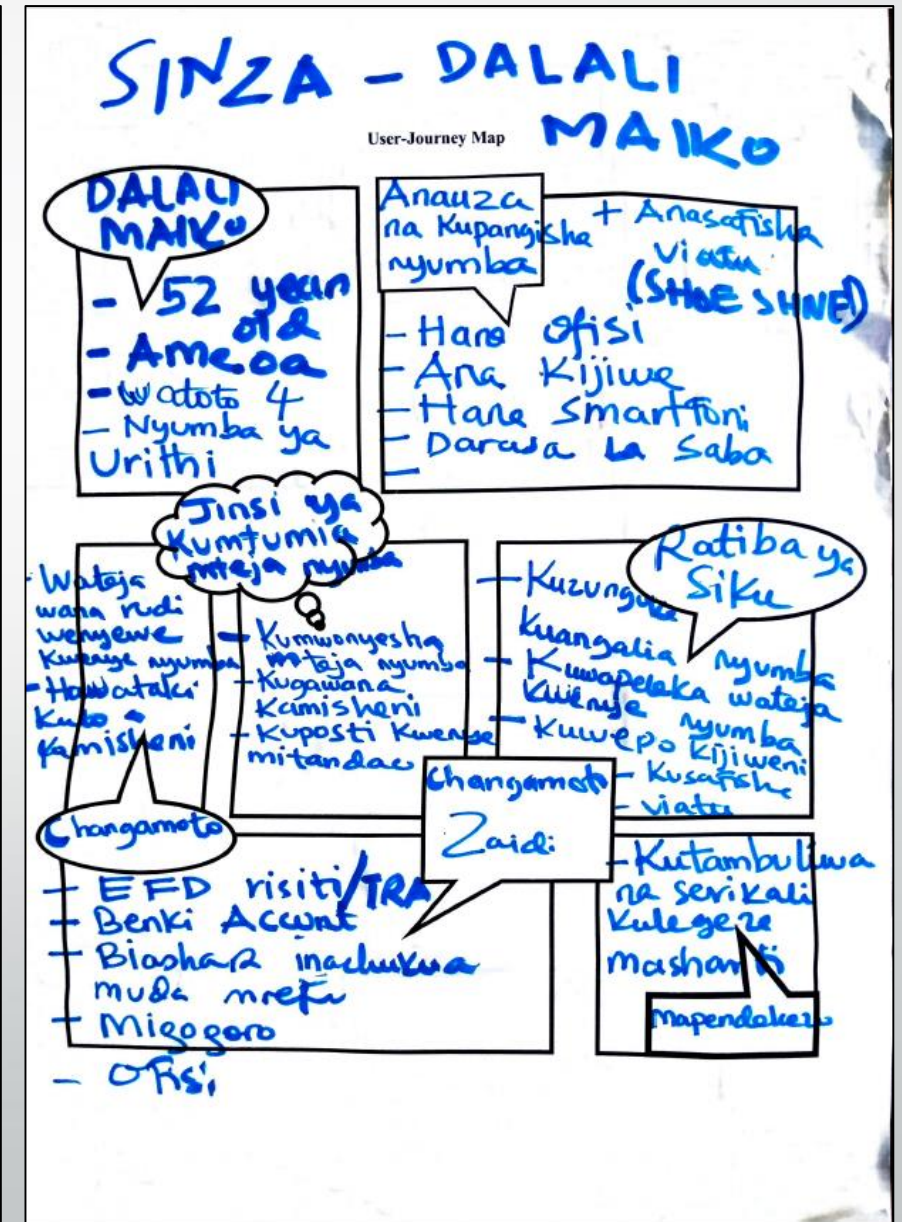 SINZA - DALALI
MAIKO
User-Journey Map
DALALI
MAIKO
- 52 years
old
- Ameoa
- Watoto 4
- Nyumba ya
Urithi
Anauza
na Kupangisha
nyumba
+ Anasafisha
viatu
(SHOE SHINE)
- Hana ofisi
- Ana Kijiwe
- Hana Smartfoni
- Darasa la Saba
-
Jinsi ya
Kumtumia
mteja nyumba
- Wateja
wana rudi
wenyewe
Kwenye nyumba
- Hawataki
Kutoa
Kamisheni
Changamoto
- Kumwonyesha
mteja nyumba
- Kugawana
Kamisheni
- Kuposti Kwenye
mitandao
Ratiba ya
Siku
- Kuzunguka
Kuangalia nyumba
- Kuwapeleka wateja
Kwenye nyumba
- Kuwepo Kijiweni
- Kusafisha
- viatu
Changamoto
Zaidi
- EFD risiti/TRA
- Benki Account
- Biashara inachukua
muda mrefu
- Migogoro
- Ofisi
- Kutambuliwa
na serikali
Kulegeza
masharti
mapendekezo